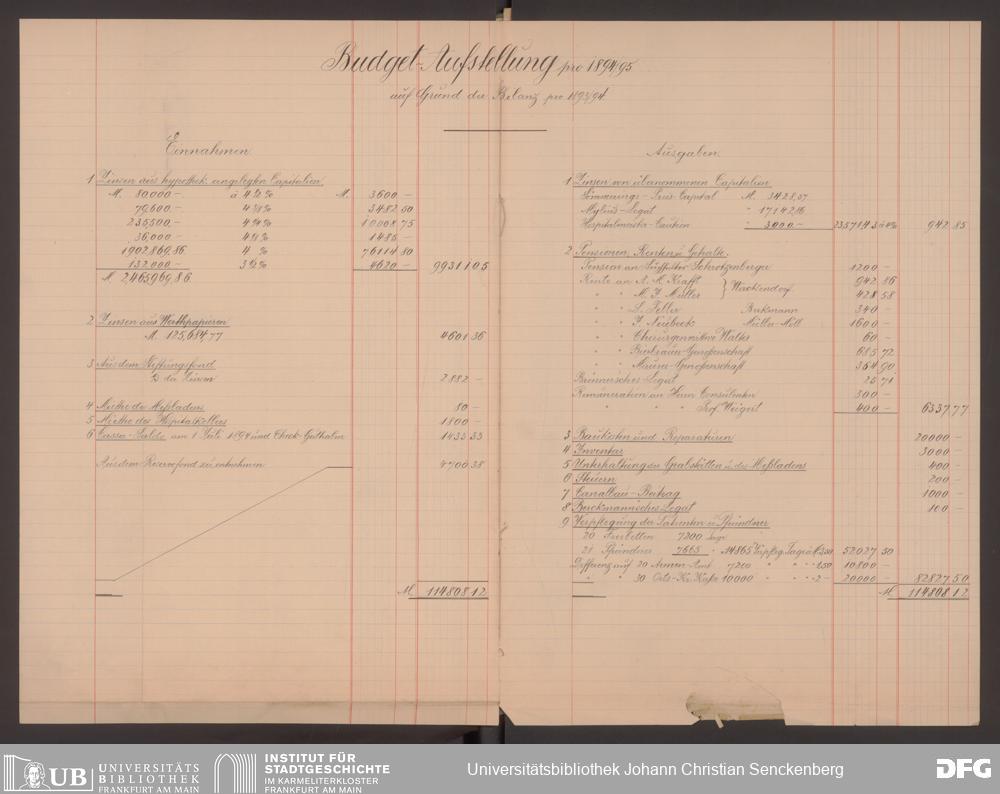 Budget-Aufstellung pro 1894/95
auf Grund der Bilanz pro 1893/94
Einnahmen
1 Zinsen aus hypothek. angelegten Capitalien
M. 80,000.- à 4½% M. 3600.-
79,600.- 4⅜% 3482 50
235,500.- 4¼% 10008 75
36,000.- 4⅛% 1485.-
1902,869,86. 4 % 76114 80
132,000.- 3½% 4620.- 99311 05
M. 2,465969,86.
2 Zinsen aus Werthpapieren
M. 125,684,77 4601 36
3 Aus dem Stiftungsfond
der Zinsen 2882 -
4 Miethe des Meßladens 80 -
5 Miethe des Hospitalkellers 1800 -
6 Cassa-Saldo am 1 Juli 1894 und Check-Guthaben 1433 33
Aus dem Reservefond zu entnehmen 4700 38
M. 114808 12
Ausgaben
1 Zinsen von übernommenen Capitalien
Capital M. 3428,57
Mylius-Legat " 17142,86
Hospitalmeister-Caution 3,000.- 23571,43 à 4% 942 85
2 Pensionen, Renten u. Gehalte.
Pension an Schrotzenberger 1200 -
Rente an A. M. Krafft 942 86
" " M. J. Müller } Wackendorf 428 58
" " L. Feller Bukmann 340 -
" " J. Neubeck Müller-Moll 1600 -
" " Chirurgenwittwe Walter 60 -
" " Bierbrauer-Genossenschaft 685 72
" " Maurer-Genossenschaft 354 90
Legat 25 71
Remuneration an Herrn Consulenten 300 -
" " " Prof. Weigert 400 - 6337 77
3 Baukosten und Reparaturen 20000 -
4 Inventar 3000 -
5 Unterhaltung der Grabstätten u. des Meßladens 400 -
6 Steuern 200 -
7 Canalbau-Beitrag 1000 -
8 Berckmannisches Legat 100 -
9 Verpflegung der Patienten u. Pfründner
20 Freibetten 7200 Tage
21 Pfründner 7665 " 14865 Verpfleg. Tage à M. 3,50 52027 50
Differenz auf 20 Armen-Amt 7200 " " " 1,50 10800 -
" " 30 Orts-Kr. Kasse 10000 " " " 2- 20000 - 82827 50
M. 114808 12
UB UNIVERSITÄTS BIBLIOTHEK FRANKFURT AM MAIN
INSTITUT FÜR STADTGESCHICHTE IM KARMELITERKLOSTER FRANKFURT AM MAIN
Universitätsbibliothek Johann Christian Senckenberg
DFG